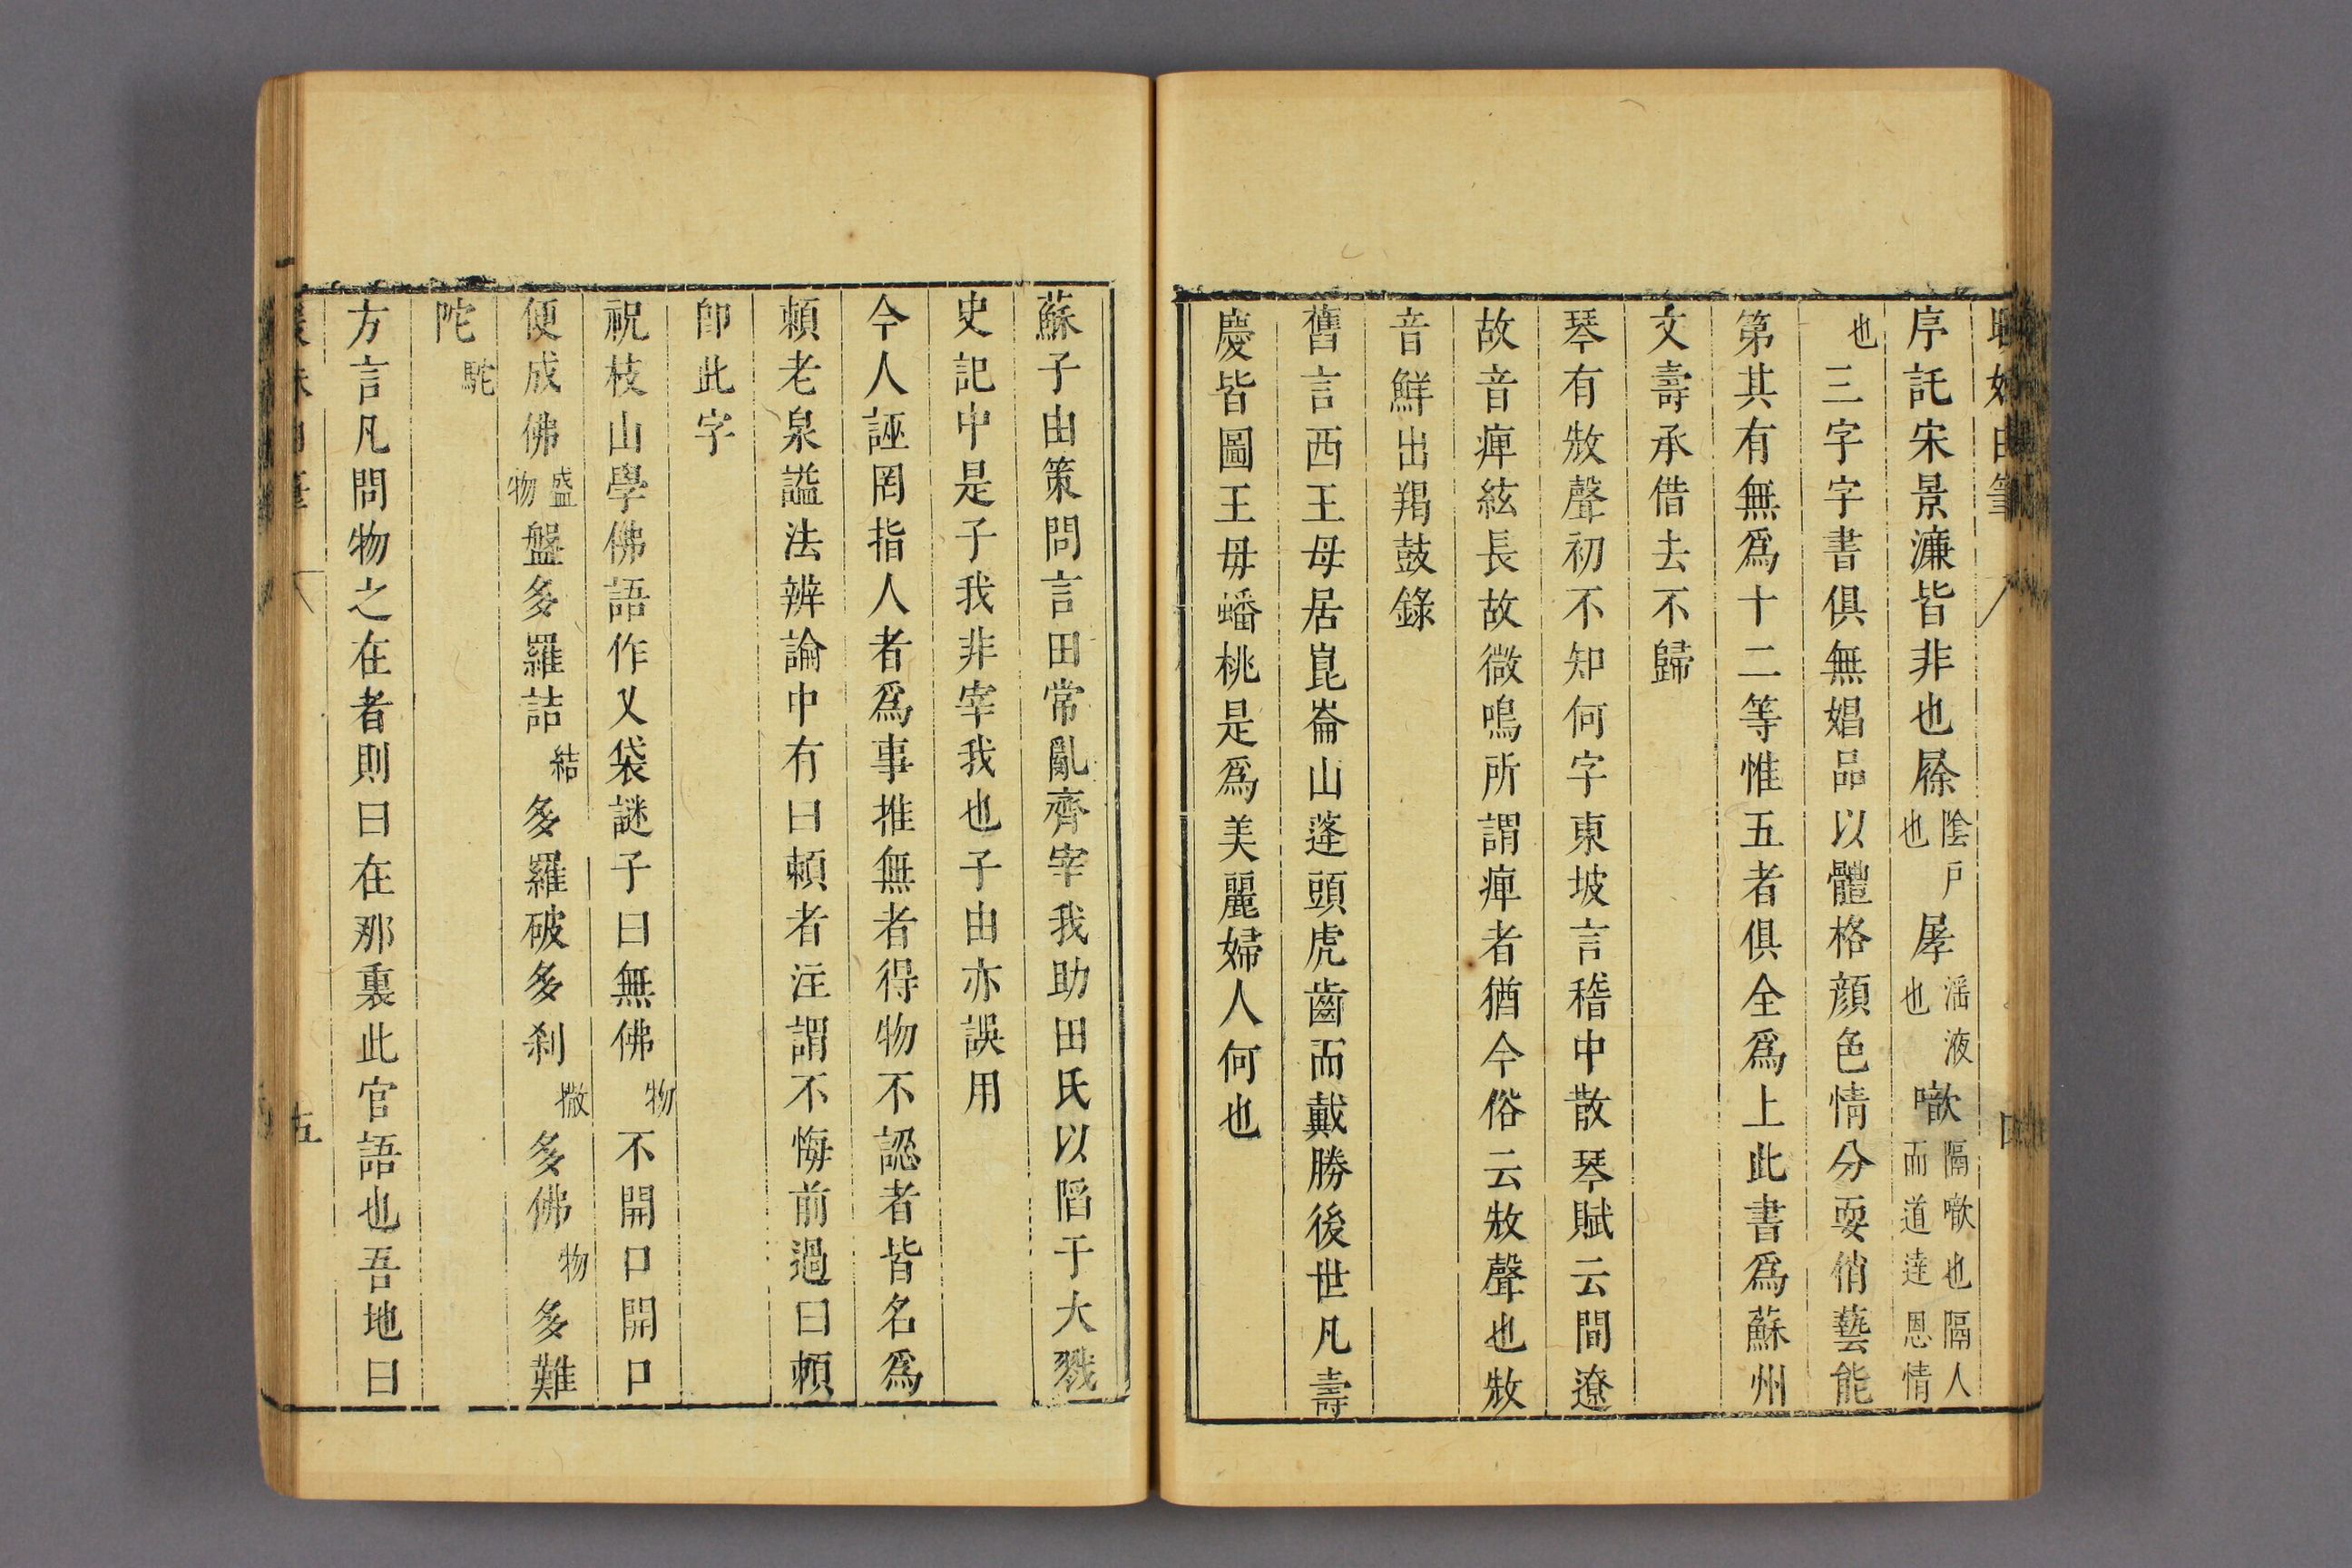 序託宋景濂皆非也屪陰戶也屖淫液也㗿隔㗿也隔人而道達恩情
也三字字書俱無娼品以體格顏色情分耍俏藝能
第其有無爲十二等惟五者俱全爲上此書爲蘇州
文壽承借去不歸
琴有㪇聲初不知何字東坡言嵇中散琴賦云間遼
故音痺絃長故徽鳴所謂痺者猶今俗云㪇聲也㪇
音鮮出羯鼓錄
舊言西王母居崑崙山蓬頭虎齒而戴勝後世凡壽
慶皆圖王毋蟠桃是爲美麗婦人何也
蘇子由策問言田常亂齊宰我助田氏以陷于大戮
史記中是子我非宰我也子由亦誤用
今人誣罔指人者爲事推無者得物不認者皆名爲
賴老泉謚法辨論中有曰賴者注謂不悔前過曰賴
卽此字
祝枝山學佛語作叉袋謎子曰無佛物不開口開口
便成佛盛物盤多羅詰結多羅破多刹撒多佛物多難
陀駝
方言凡問物之在者則曰在那裏此官語也吾地曰
五